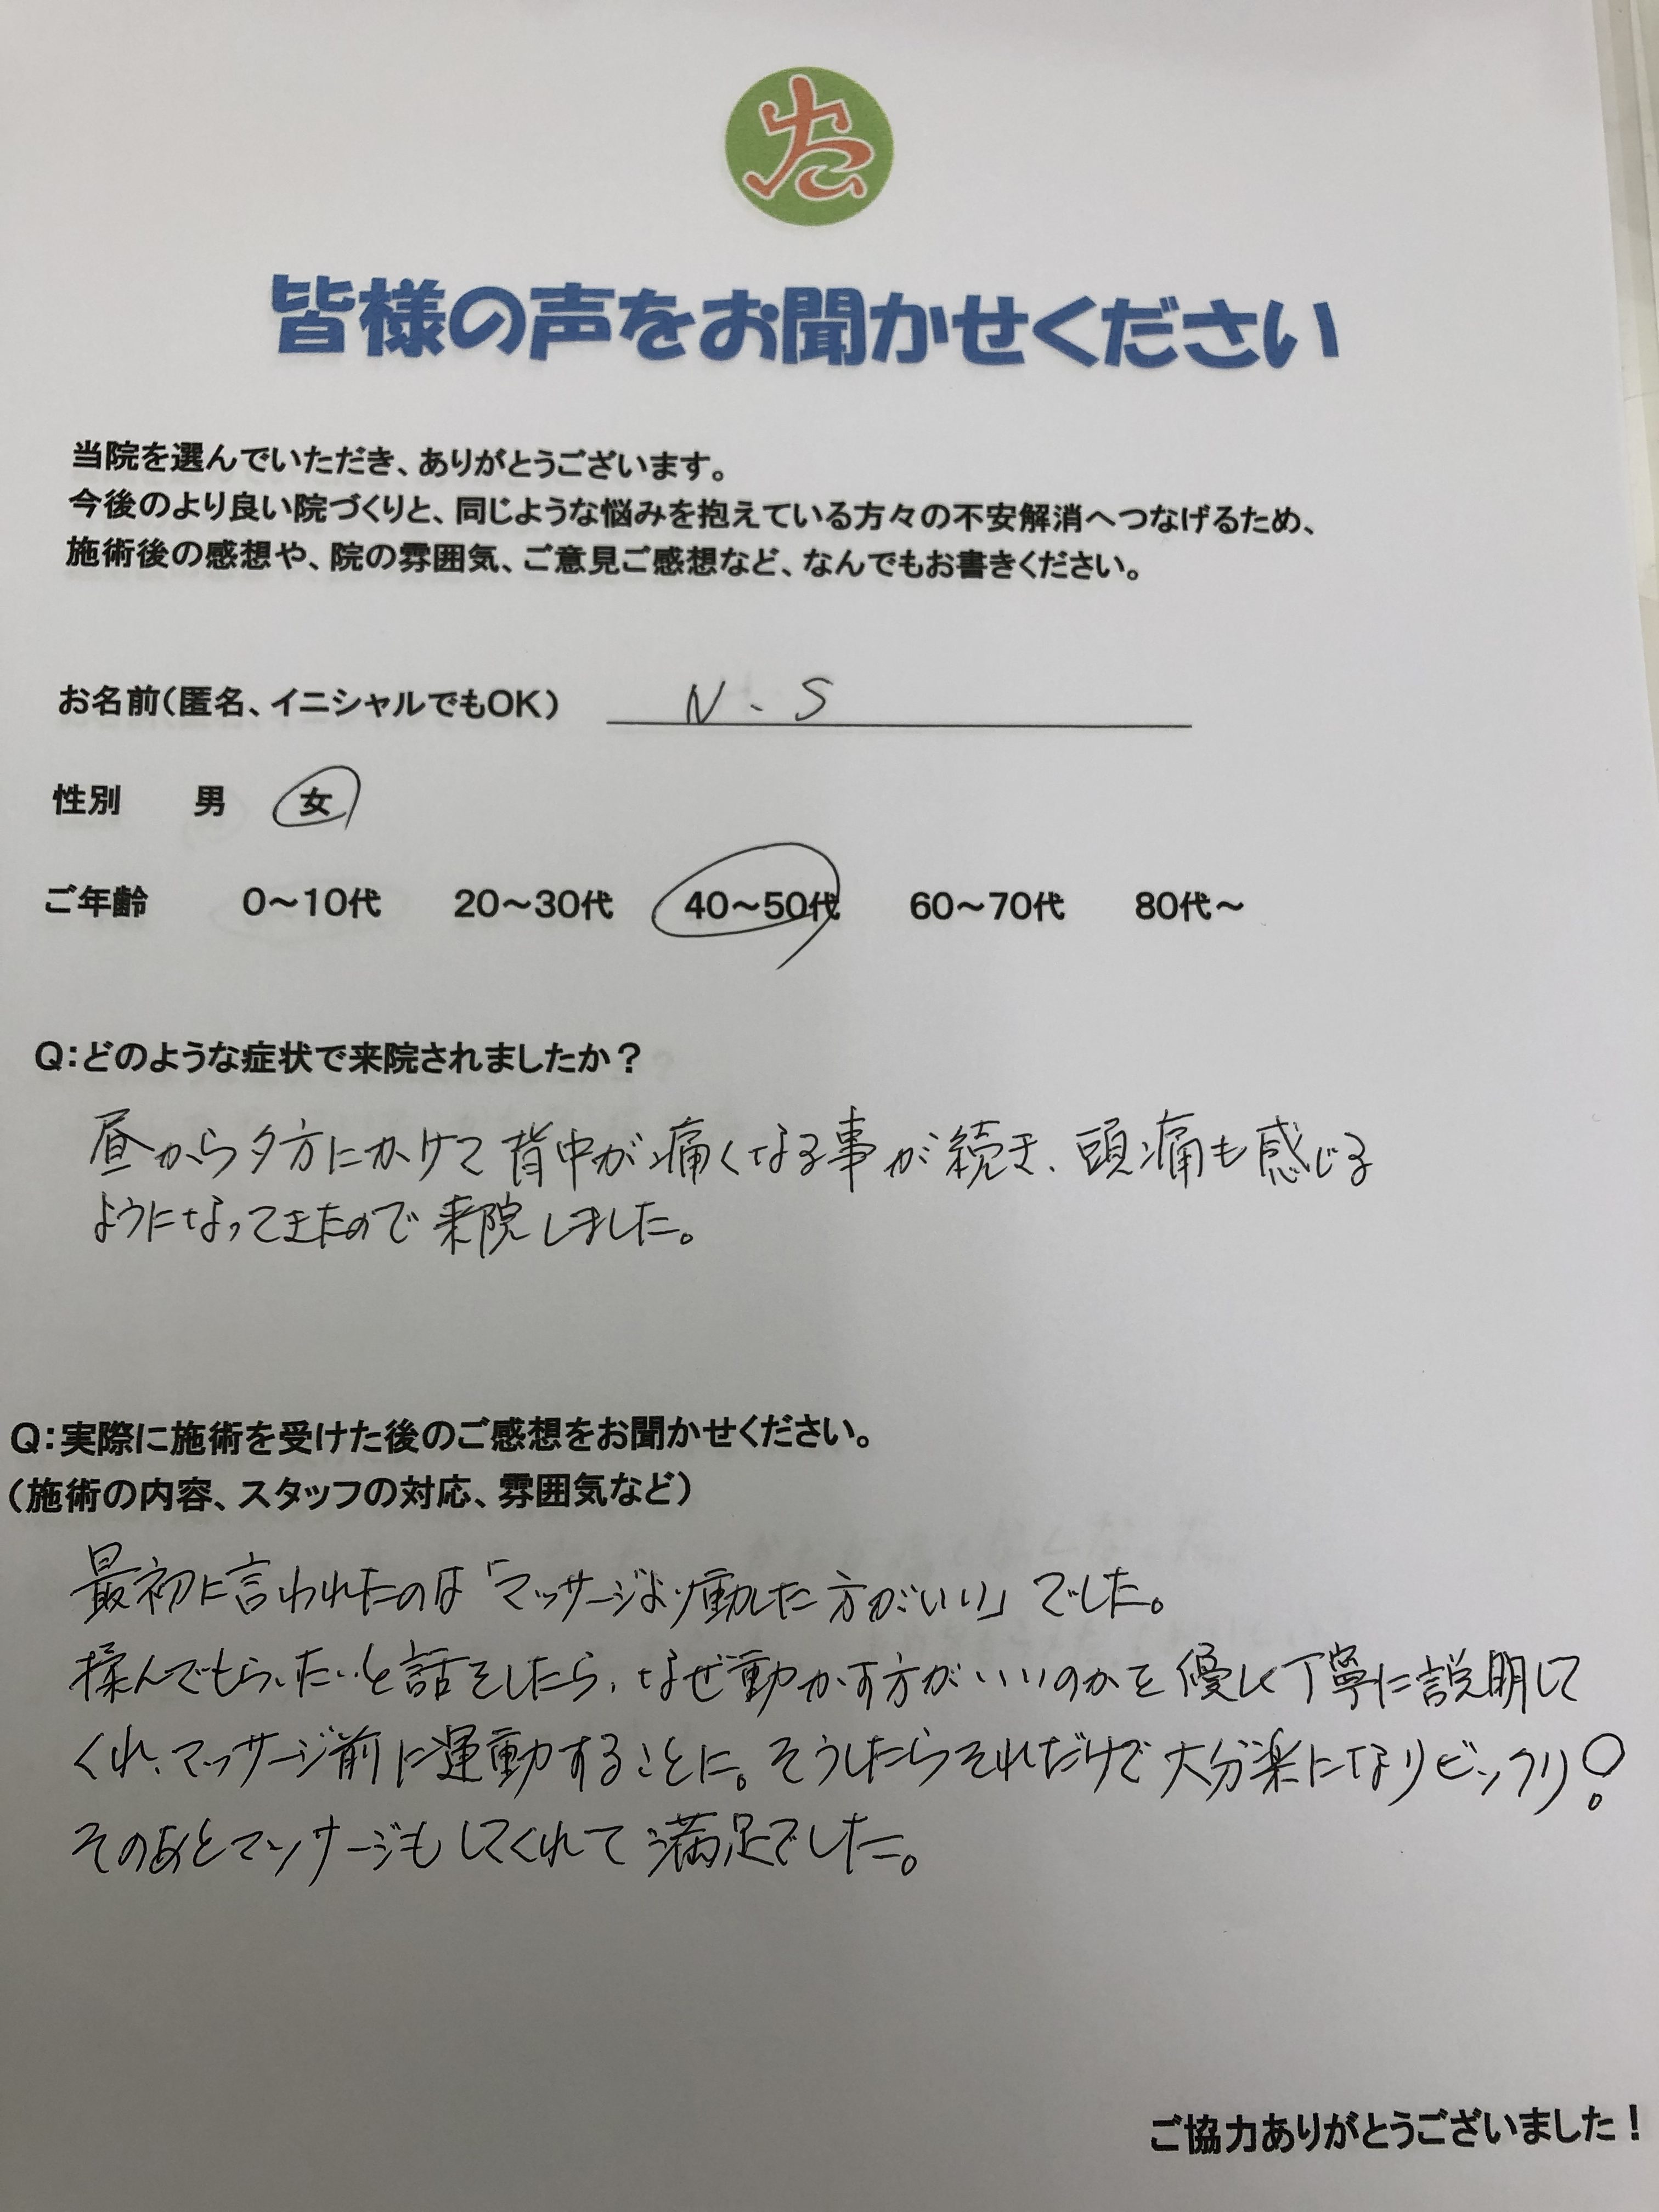 皆様の声をお聞かせください
当院を選んでいただき、ありがとうございます。
今後のより良い院づくりと、同じような悩みを抱えている方々の不安解消へつなげるため、
施術後の感想や、院の雰囲気、ご意見ご感想など、なんでもお書きください。
お名前(匿名、イニシャルでもOK) N.S
性別 男 女
ご年齢 0～10代 20～30代 40～50代 60～70代 80代～
Q:どのような症状で来院されましたか?
昼から夕方にかけて背中が痛くなる事が続き、頭痛も感じる
ようになってきたので来院しました。
Q:実際に施術を受けた後のご感想をお聞かせください。
(施術の内容、スタッフの対応、雰囲気など)
最初に言われたのは「マッサージより動した方がいい」でした。
揉んでもらいたいと話をしたら、なぜ動かす方がいいのかを優しく丁寧に説明して
くれ、マッサージ前に運動することに。そうしたらそれだけで大分楽になりビックリ!
そのあとマッサージもしてくれて満足でした。
ご協力ありがとうございました!